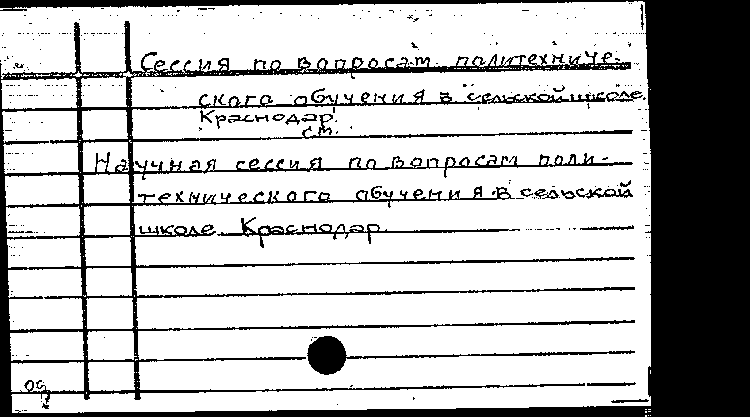 Сессия по вопросам политехниче-
ского обучения в сельской школе.
Краснодар.
см.
Научная сессия по вопросам поли-
технического обучения в сельской
школе. Краснодар.